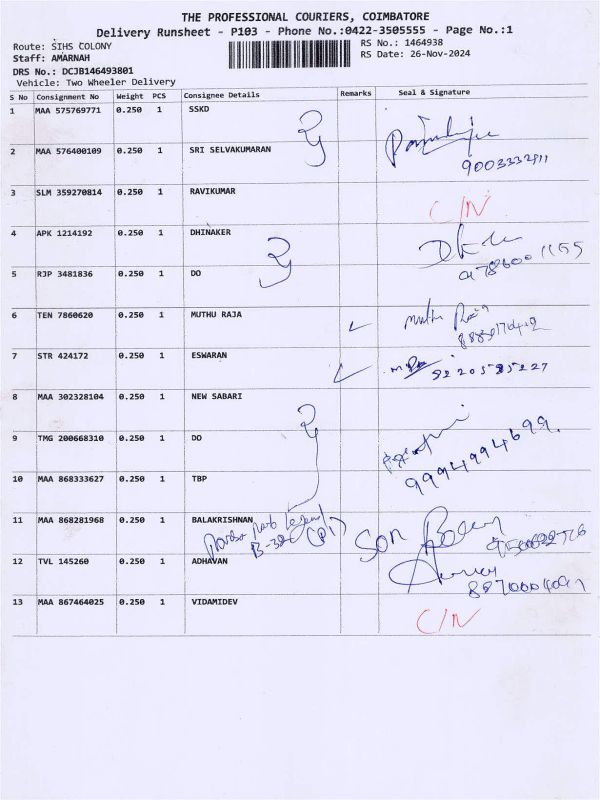 THE PROFESSIONAL COURIERS, COIMBATORE
Delivery Runsheet - P103 - Phone No.:0422-3505555 - Page No.:1
Route: SIHS COLONY
RS No.: 1464938
Staff: AMARNAH
RS Date: 26-Nov-2024
DRS No.: DCJB146493801
Vehicle: Two Wheeler Delivery
S No Consignment No Weight PCS Consignee Details Remarks Seal & Signature
1 MAA 575769771 0.250 1 SSKD
2 MAA 576400109 0.250 1 SRI SELVAKUMARAN
3 SLM 359270814 0.250 1 RAVIKUMAR C/N
4 APK 1214192 0.250 1 DHINAKER
5 RJP 3481836 0.250 1 DO
6 TEN 7860620 0.250 1 MUTHU RAJA Muthu Raja
7 STR 424172 0.250 1 ESWARAN 8220585227
8 MAA 302328104 0.250 1 NEW SABARI
9 TMG 200668310 0.250 1 DO
9994994699.
10 TMG 868333627 0.250 1 TBP
11 MAA 868281968 0.250 1 BALAKRISHNAN Son
12 TVL 145260 0.250 1 ADHAVAN
13 MAA 867464025 0.250 1 VIDAMIDEV C/N